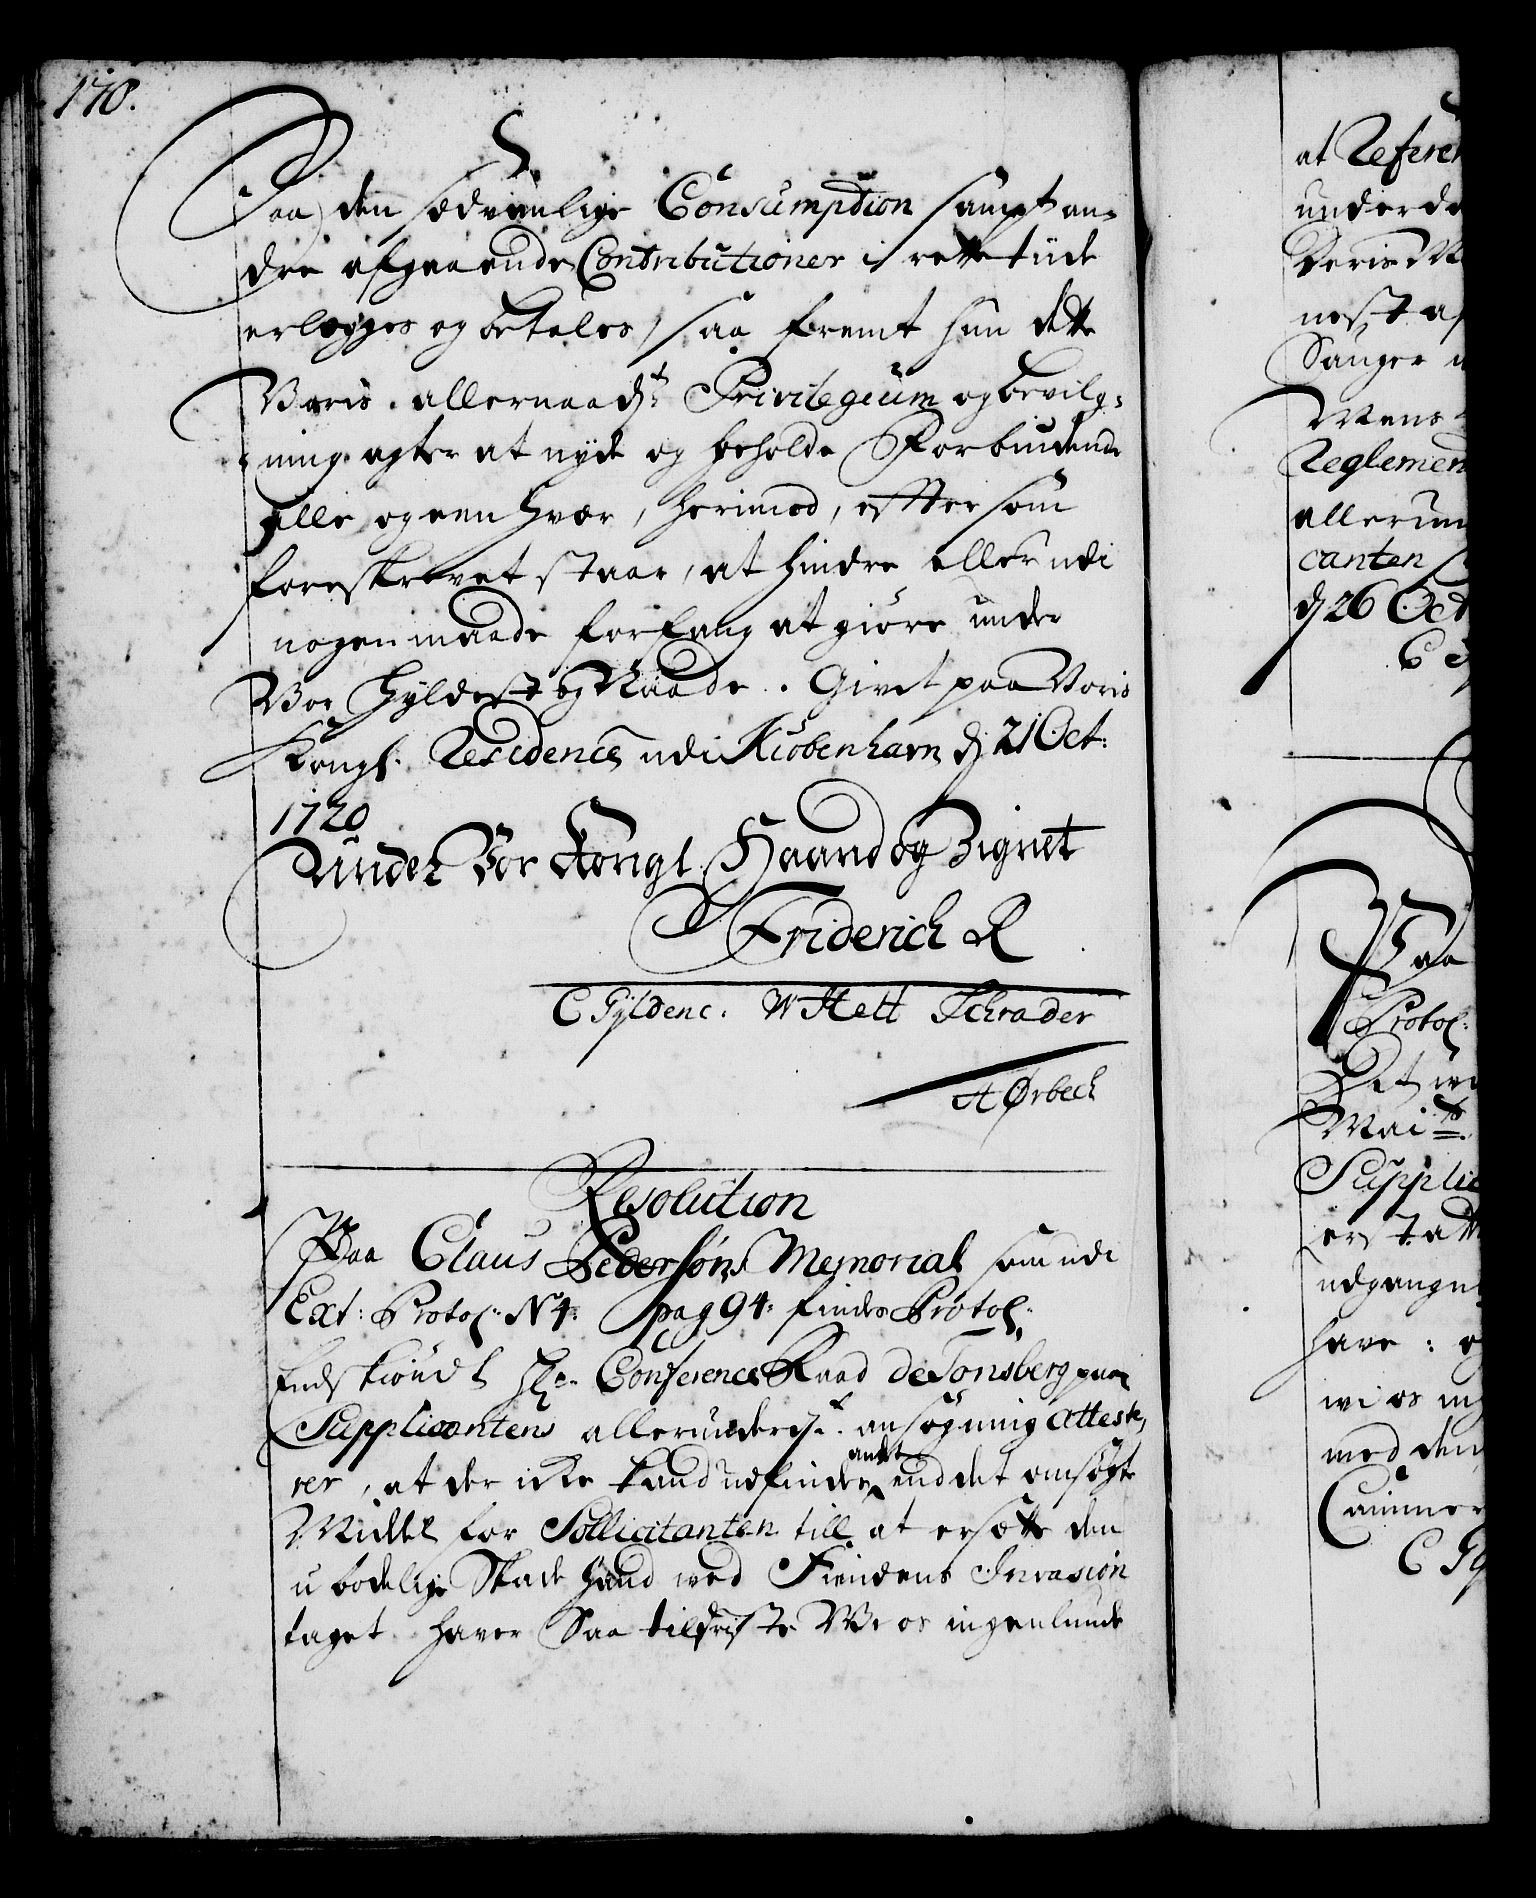 178.
Saa den sædvanlige Consumption sampt an-
dre afgaaende Contributioner i rette tiide
erlægges og betales, saa fremt hun dette
Voris allernaadst: Privilegium og bevilg-
ning agter at nyde og beholde Forbindende
alle og een hver, herimod, eftter som
foreskrevet staar, at hindre eller udi
nogen maade forfang at giöre under
Vor Hyldest og Naade. Givet paa Voris
Kongl. Residence udi Kiöbenhavn dj 21 Oct:
1720
Under Vor Kongl. Haand og Zignet
Friderich R
C Gyldenc. W Helt Schrader
A Ørbech
Resolution
Paa Claus Pedersøns Memorial som udi
Ext: Protol: N4: pag 94: findes Protol:
Endskiöndt Hr. Conference Raad de Tonsberg paa
Supplicantens allerunderdst. ansøgning atteste,
rer, at der icke kand udfindes andet end det ansøgte
Middel for Sollicitanten till at ersætte den
ubodelige Skade hand ved Fiendens Invasion
taget haver Saa tilfriste We os ingenlunde
at Referer
underda
Voris M
nest af
Sauger
Mens
Reglemen
allerun
canten
dj 26 Oct
C G
Paa
Protol:
Det we
Mait:
Supplic
erstatt
udgangne
have: o
wi os in
med den
Cammer
C Gy